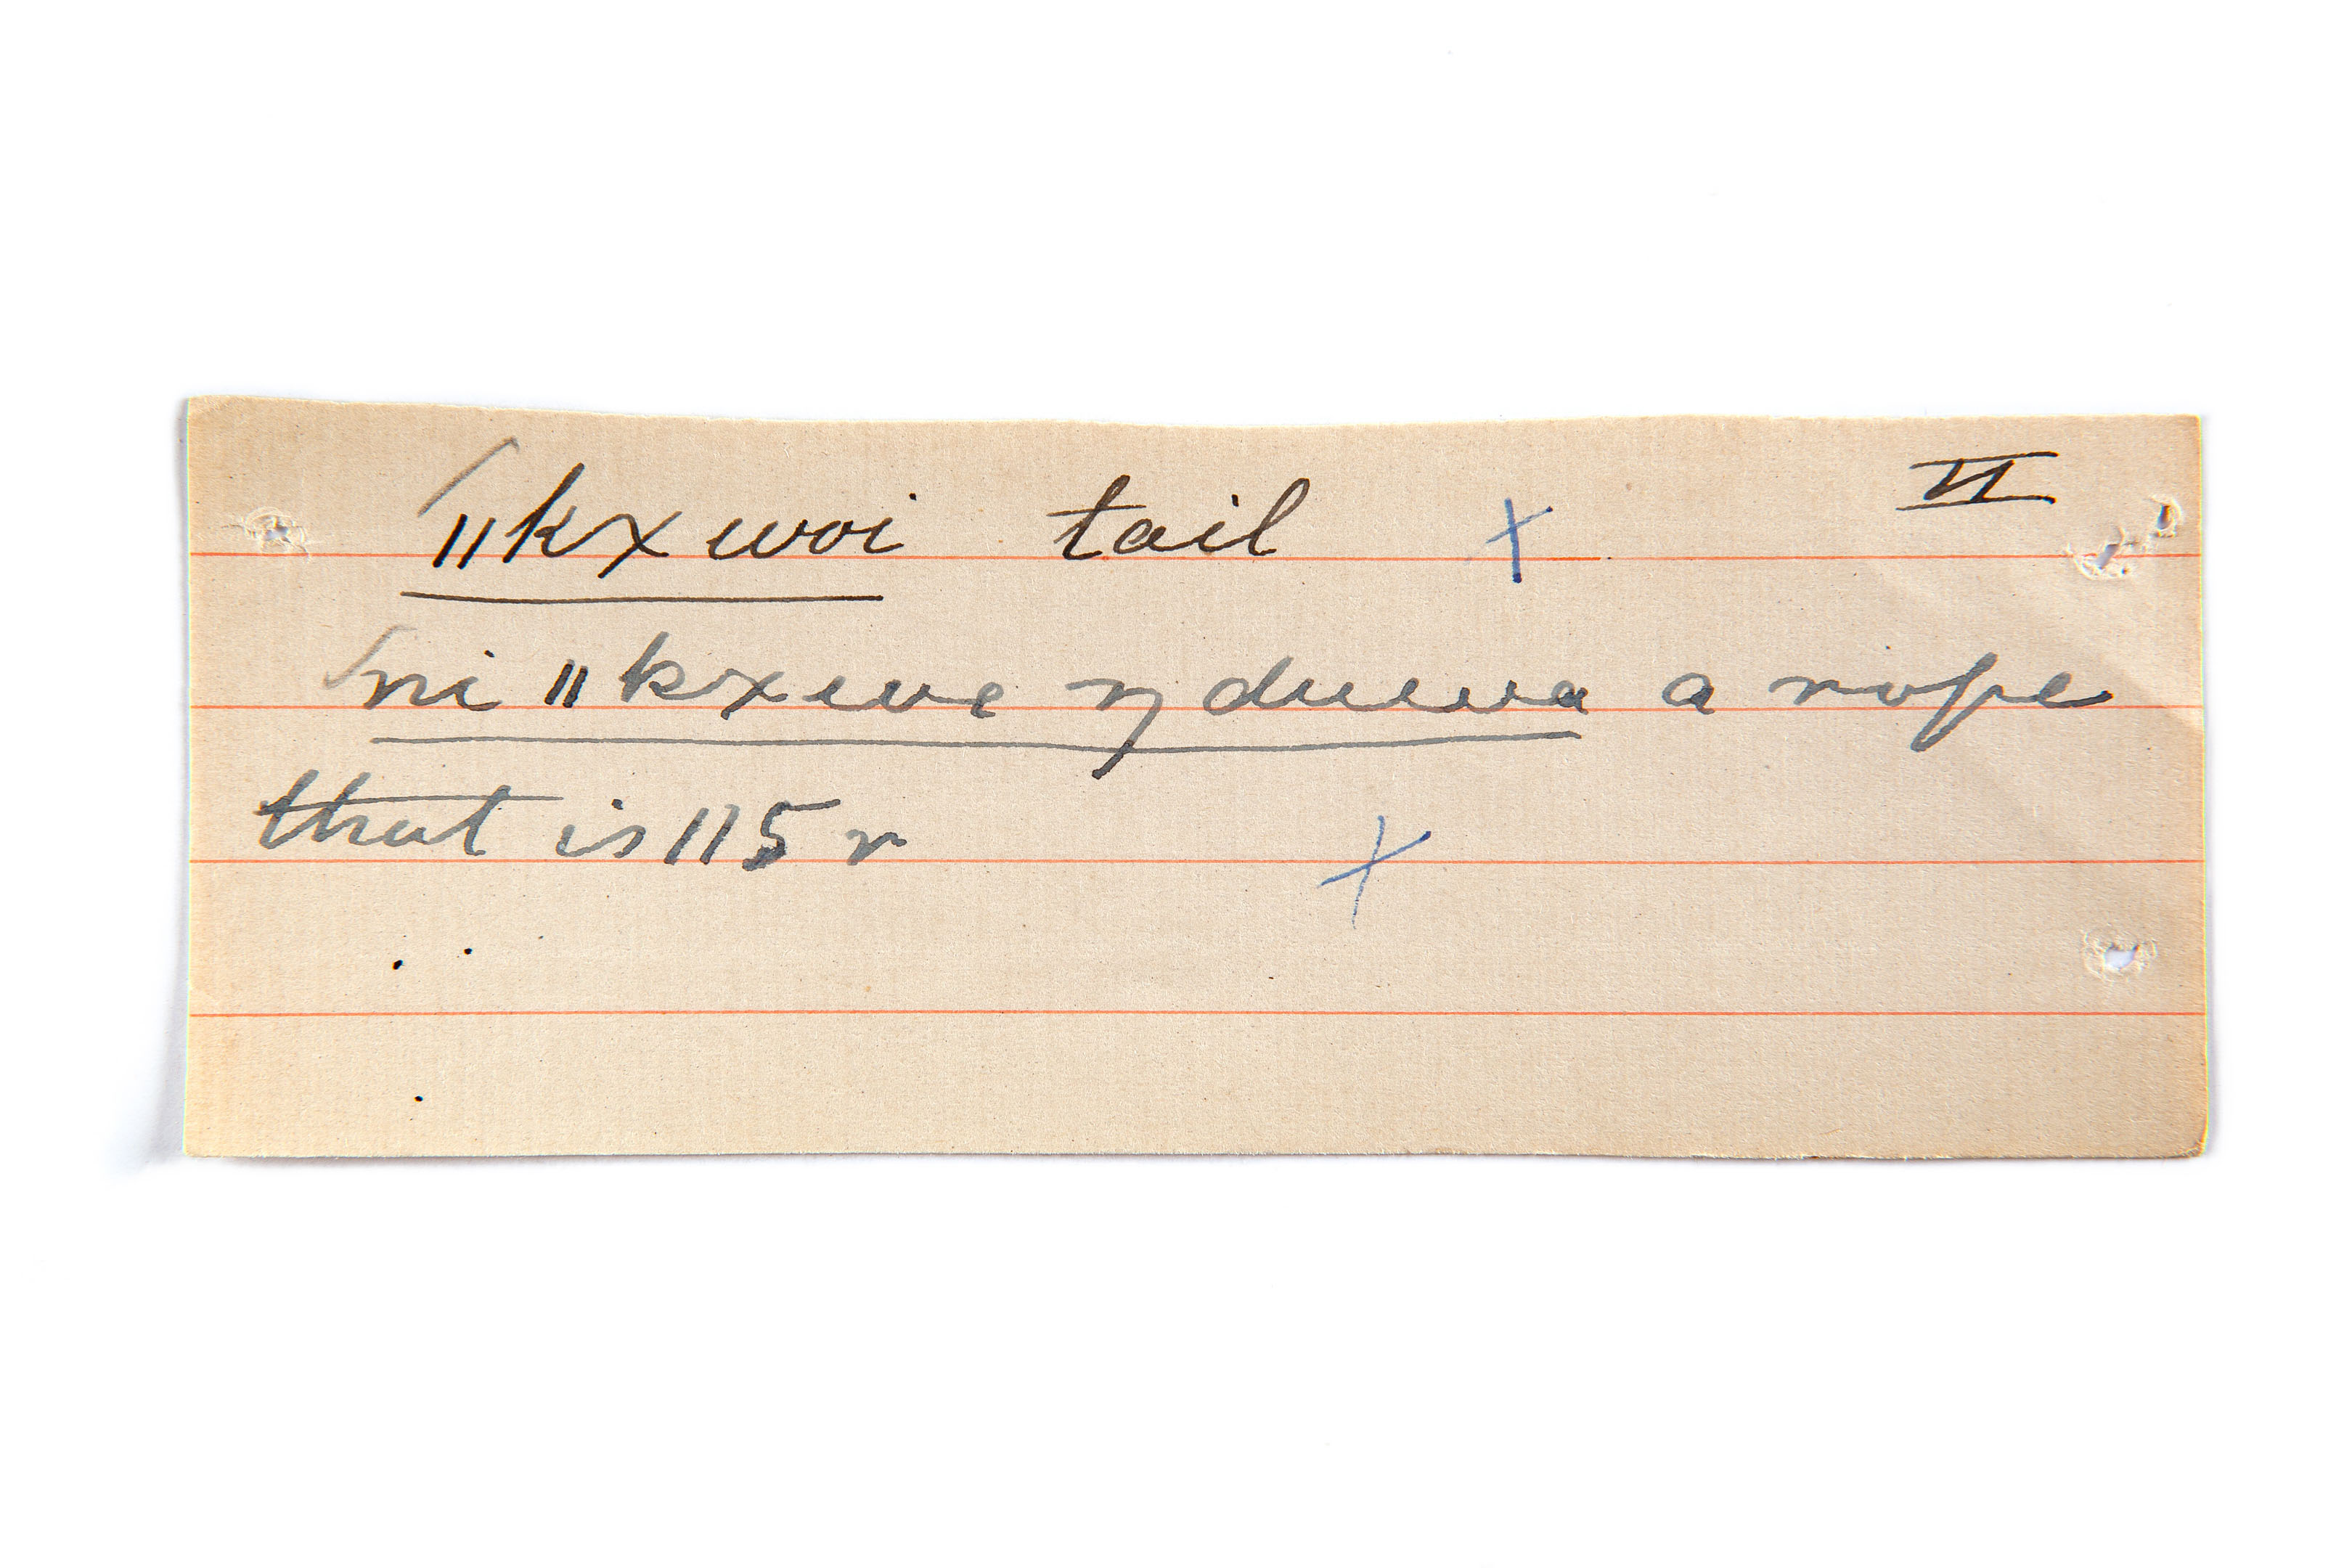 ǁkxwoi tail x VI
ni ǁkxwe ŋ duwa a rope
that is 115 r x